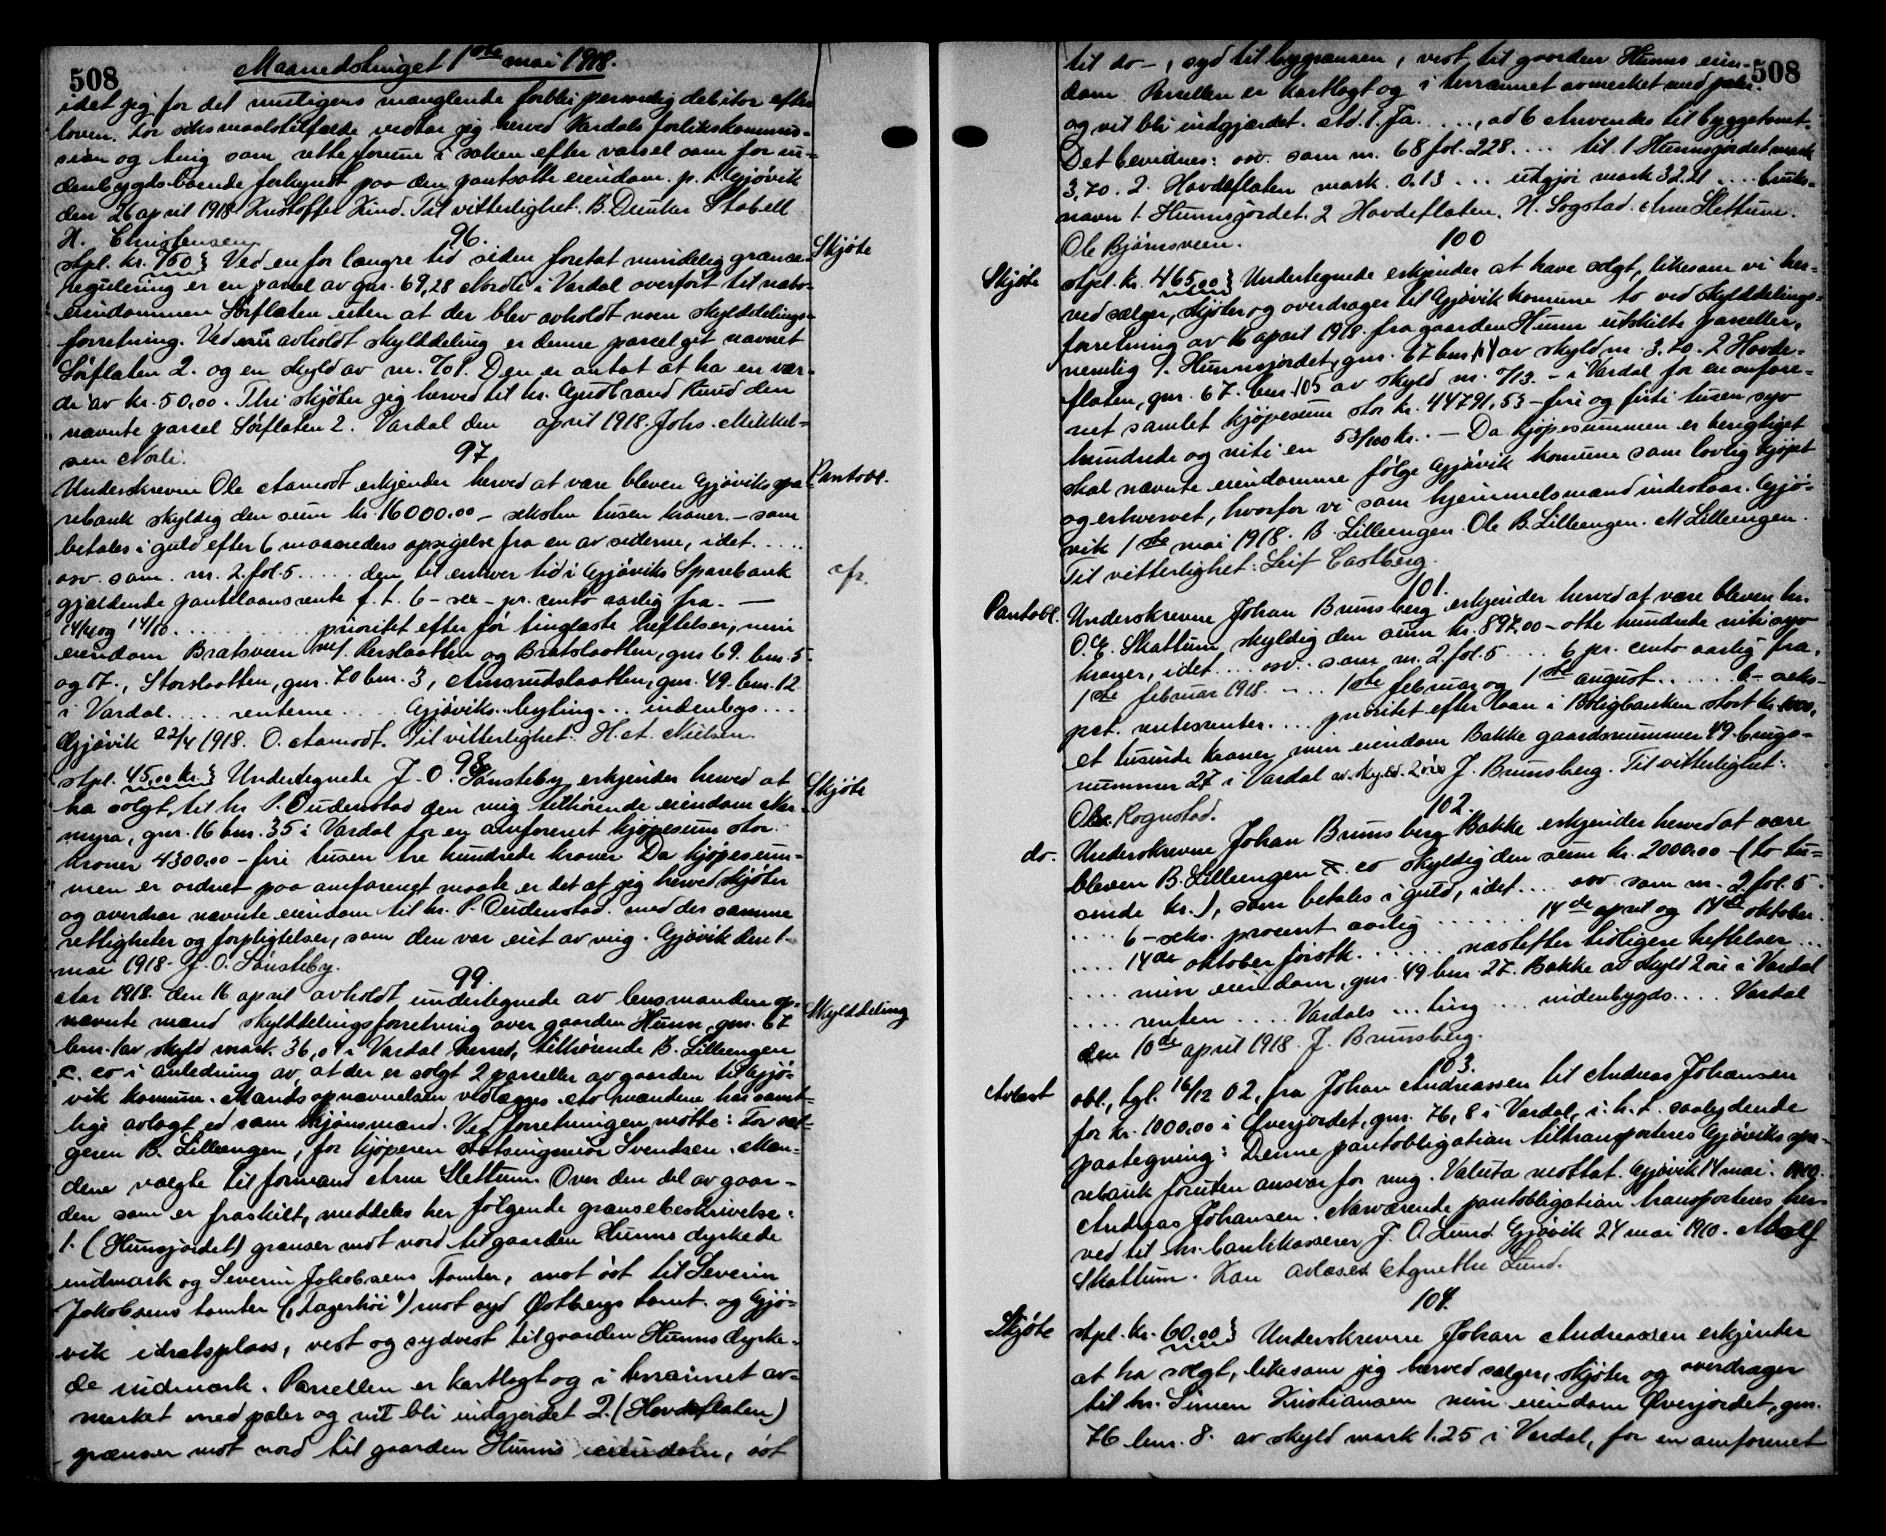 508
Maanedstinget 1ste mai 1918.
idet jeg for det mulig ens manglende forbli personlig debitor efter
loven. For søksmaalstilfælde vedtar jeg herved Vardals forlikskommis-
sion og ting som rette forum i saken efter varsel som for in-
denbygdsboende forkyndt paa den pantsatte eiendom. p.t. Gjøvik
den 26 april 1918 Kristoffer Kind. Til vitterlighet. B. Dunker Stabell
H. Christensen.
96.
Skjøte
stpl. kr. 1.50 } Ved en for længre tid siden foretat mindelig grænse-
regulering er en parsel av gnr. 69,28 Nordli i Vardal overført til nabo-
eiendommen Sørflaten uten at der blev avholdt noen skylddelings-
forretning. Ved nu avholdt skylddeling er denne parsel git navnet
Sørflaten 2. og en skyld av m. 0,01. Den er antat at ha en vær-
di av kr. 50,00. Thi skjøter jeg herved til hr. Gudbrand Ruud den
nævnte parsel Sørflaten 2. Vardal den april 1918. Johs. Mikkel-
sen Norli.
97
Pantobl.
Underskrevne Ole Aamodt erkjender herved at være bleven Gjøviks spa-
rebank skyldig den sum kr. 16000.00 – seksten tusen kroner. – som
betales i guld efter 6 maaneders opsigelse fra en av siderne, idet .....
osv. som m. 2 fol. 5 ..... den til enhver tid i Gjøviks Sparebank
cfr.
gjældende pantelaansrente f. t. 6 – sex – pr. cento aarlig fra. —
14/4 og 14/10 ............ prioritet efter før tinglæste heftelser, min
eiendom Bratsveen m/ Kerslaatten og Bratslaatten, gnr. 69. bnr. 5
og 17., Storslaatten, gnr. 70 bnr. 3, Amrudslaatten, gnr. 49. bnr. 12
i Vardal ..... renterne .... Gjøviks byting ... indenbys ...
Gjøvik 22/4 1918. O. Aamodt. Til vitterlighet. H. A. Nielsen.
98
Skjøte
stpl. 45,00 kr. } Undertegnede J. O. Sønsteby erkjender herved at
ha solgt til hr. P. Oudenstad den mig tilhørende eiendom Nor-
myra, gnr. 16 bnr. 35 i Vardal for en omforenet kjøpesum stor
kroner 4300.00 – fire tusen tre hundrede kroner Da kjøpesum-
men er ordnet paa omforenet maate er det at jeg herved skjøter
og overdrar nævnte eiendom til hr. P. Oudenstad med de samme
rettigheter og forpligtelser, som den var eiet av mig. Gjøvik den 1
mai 1918. J. O. Sønsteby.
99.
Skylddeling
Aar 1918. den 16 april avholdt undertegnede av lensmanden op-
nævnte mænd skylddelingsforretning over gaarden Hunn, gnr. 67
bnr. 1 av skyld mark. 36,04 i Vardal herred, tilhørende B. Lillengen
& co i anledning av, at der er solgt 2 parseller av gaarden til Gjø-
vik komune. Mandsopnævnelsen vedlægges. Av mændene har samt-
lige avlagt ed som skjønsmænd. Ved forretningen møtte: For sæl-
geren B. Lillengen, for kjøperen stadsingeniør Svendsen. Mæn-
dene valgte til formand Arne Slettum. Over den del av gaar-
den som er fraskilt, meddeles her følgende grænsebeskrivelse:
1. (Hunsjordet) grænser mot nord til gaarden Hunns dyrkede
indmark og Severin Jakobsens tomter, mot øst til Severin
Jakobsens tomter („Hagerhøi") mot syd Østbergs tomt og Gjø-
vik idrætsplass, vest og sydvest til gaarden Hunns dyrke-
de indmark. Parsellen er kartlagt og i terrainet av-
merket med pæler og vil bli indgjerdet 2. (Hovdeflaten)
grænser mot nord til gaarden Hunns eiendom, øst
508
til do –, syd til bygrænsen, vest til gaarden Hunns eien-
dom. Parsellen er kartlagt og i terrænnet avmerket med pæler
og vil bli indgjærdet. Ad. 1. Ja. ...., ad 6 Anvendes til byggetomt.
Det bevidnes: osv. som m. 68 fol. 228 .... til 1 Hunnsjordet mark
3,70. 2. Hovdeflaten mark. 0.13 ... utgjør mark 32.21 .... bruks-
navn 1. Hunnsjordet. 2 Hovdeflaten. H. Sogstad. Arne Slettum.
Ole Bjørnsveen.
100
Skjøte
stpl. kr. 465,00 } Undertegnede erkjender at have solgt, likesom vi her-
ved sælger, skjøter og overdrager til Gjøvik komune to ved skylddelings-
forretning av 16 april 1918. fra gaarden Hunn utskilte parceller,
nemlig 1. Hunnsjordet, gnr. 67 bnr. 104 av skyld m. 3.70. 2 Hovde-
flaten, gnr. 67. bnr. 105 av skyld m. 0,13. – i Vardal for en omfore-
net samlet kjøpesum stor kr. 44791,53 – fire og firti tusen syv
hundrede og niti en 53/100 kr. – Da kjøpesummen er berigtiget
skal nævnte eiendomme følge Gjøvik komune som lovlig kjøpt
og erhvervet, hvorfor vi som hjemmelsmænd indestaar. Gjø-
vik 1ste mai 1918. B Lillengen Ole B. Lillengen. M Lillengen.
Til vitterlighet: Leif Castberg.
101.
Pantobl.
Underskrevne Johan Brunsberg erkjender herved at være bleven hr.
O. E. Skattum skyldig den sum kr. 897,00 – otte hundrede niti syv
kroner, idet ... osv. som m. 2 fol. 5 .... 6 pr. cento aarlig fra
1ste februar 1918. .... 1ste februar og 1ste august ...... 6 – seks –
pct. rentesrenter .... prioritet efter laan i Boligbanken stort kr. 1000,
et tusinde kroner, min eiendom Bakke gaardsnummer 49 brugs-
nummer 27 i Vardal av skyld. 2 øre J. Brunsberg. Til vitterlighet:
Ole Rognstad.
102.
do.
Underskrevne Johan Brunsberg Bakke erkjender herved at være
bleven B. Lillengen & co skyldig den sum kr. 2000.00 – (to tu-
sinde kr.), som betales i guld, idet .... osv. som m. 2 fol. 5.
.... 6 – seks. procent aarlig ........ 14de april og 14de oktober.
.... 14de oktober førstk. ........ næstefter tidligere heftelser ...
.... min eiendom, gnr. 49 bnr. 27. Bakke av skyld 2 øre i Vardal
.... renten .... Vardals ... ting ... indenbygds .... Vardal
den 10de april 1918. J. Brunsberg.
103.
Avlæst
obl., tgl. 16/12 02, fra Johan Andreassen til Andreas Johansen
for kr. 1000.00 i Øverjordet, gnr. 76, 8 i Vardal, i. h. t. saalydende
paategning: Denne pantobligation tiltransporteres Gjøviks spa-
rebank foruten ansvar for mig. Valuta mottat. Gjøvik 14 mai. 1910.
Andreas Johansen. Nærværende pantobligation transporteres her-
ved til hr. bankkasserer J. O. Lund. Gjøvik 24 mai 1910. Adolf
Skattum. Kan avlæses Agnethe Lund.
104.
Skjøte
stpl. kr. 60,00 } Underskrevne Johan Andreassen erkjender
at ha solgt, likesom jeg herved sælger, skjøter og overdrager
til hr. Simen Kristiansen min eiendom Øverjordet, gnr.
76 bnr. 8. av skyld mark 1.25 i Vardal, for en omforenet